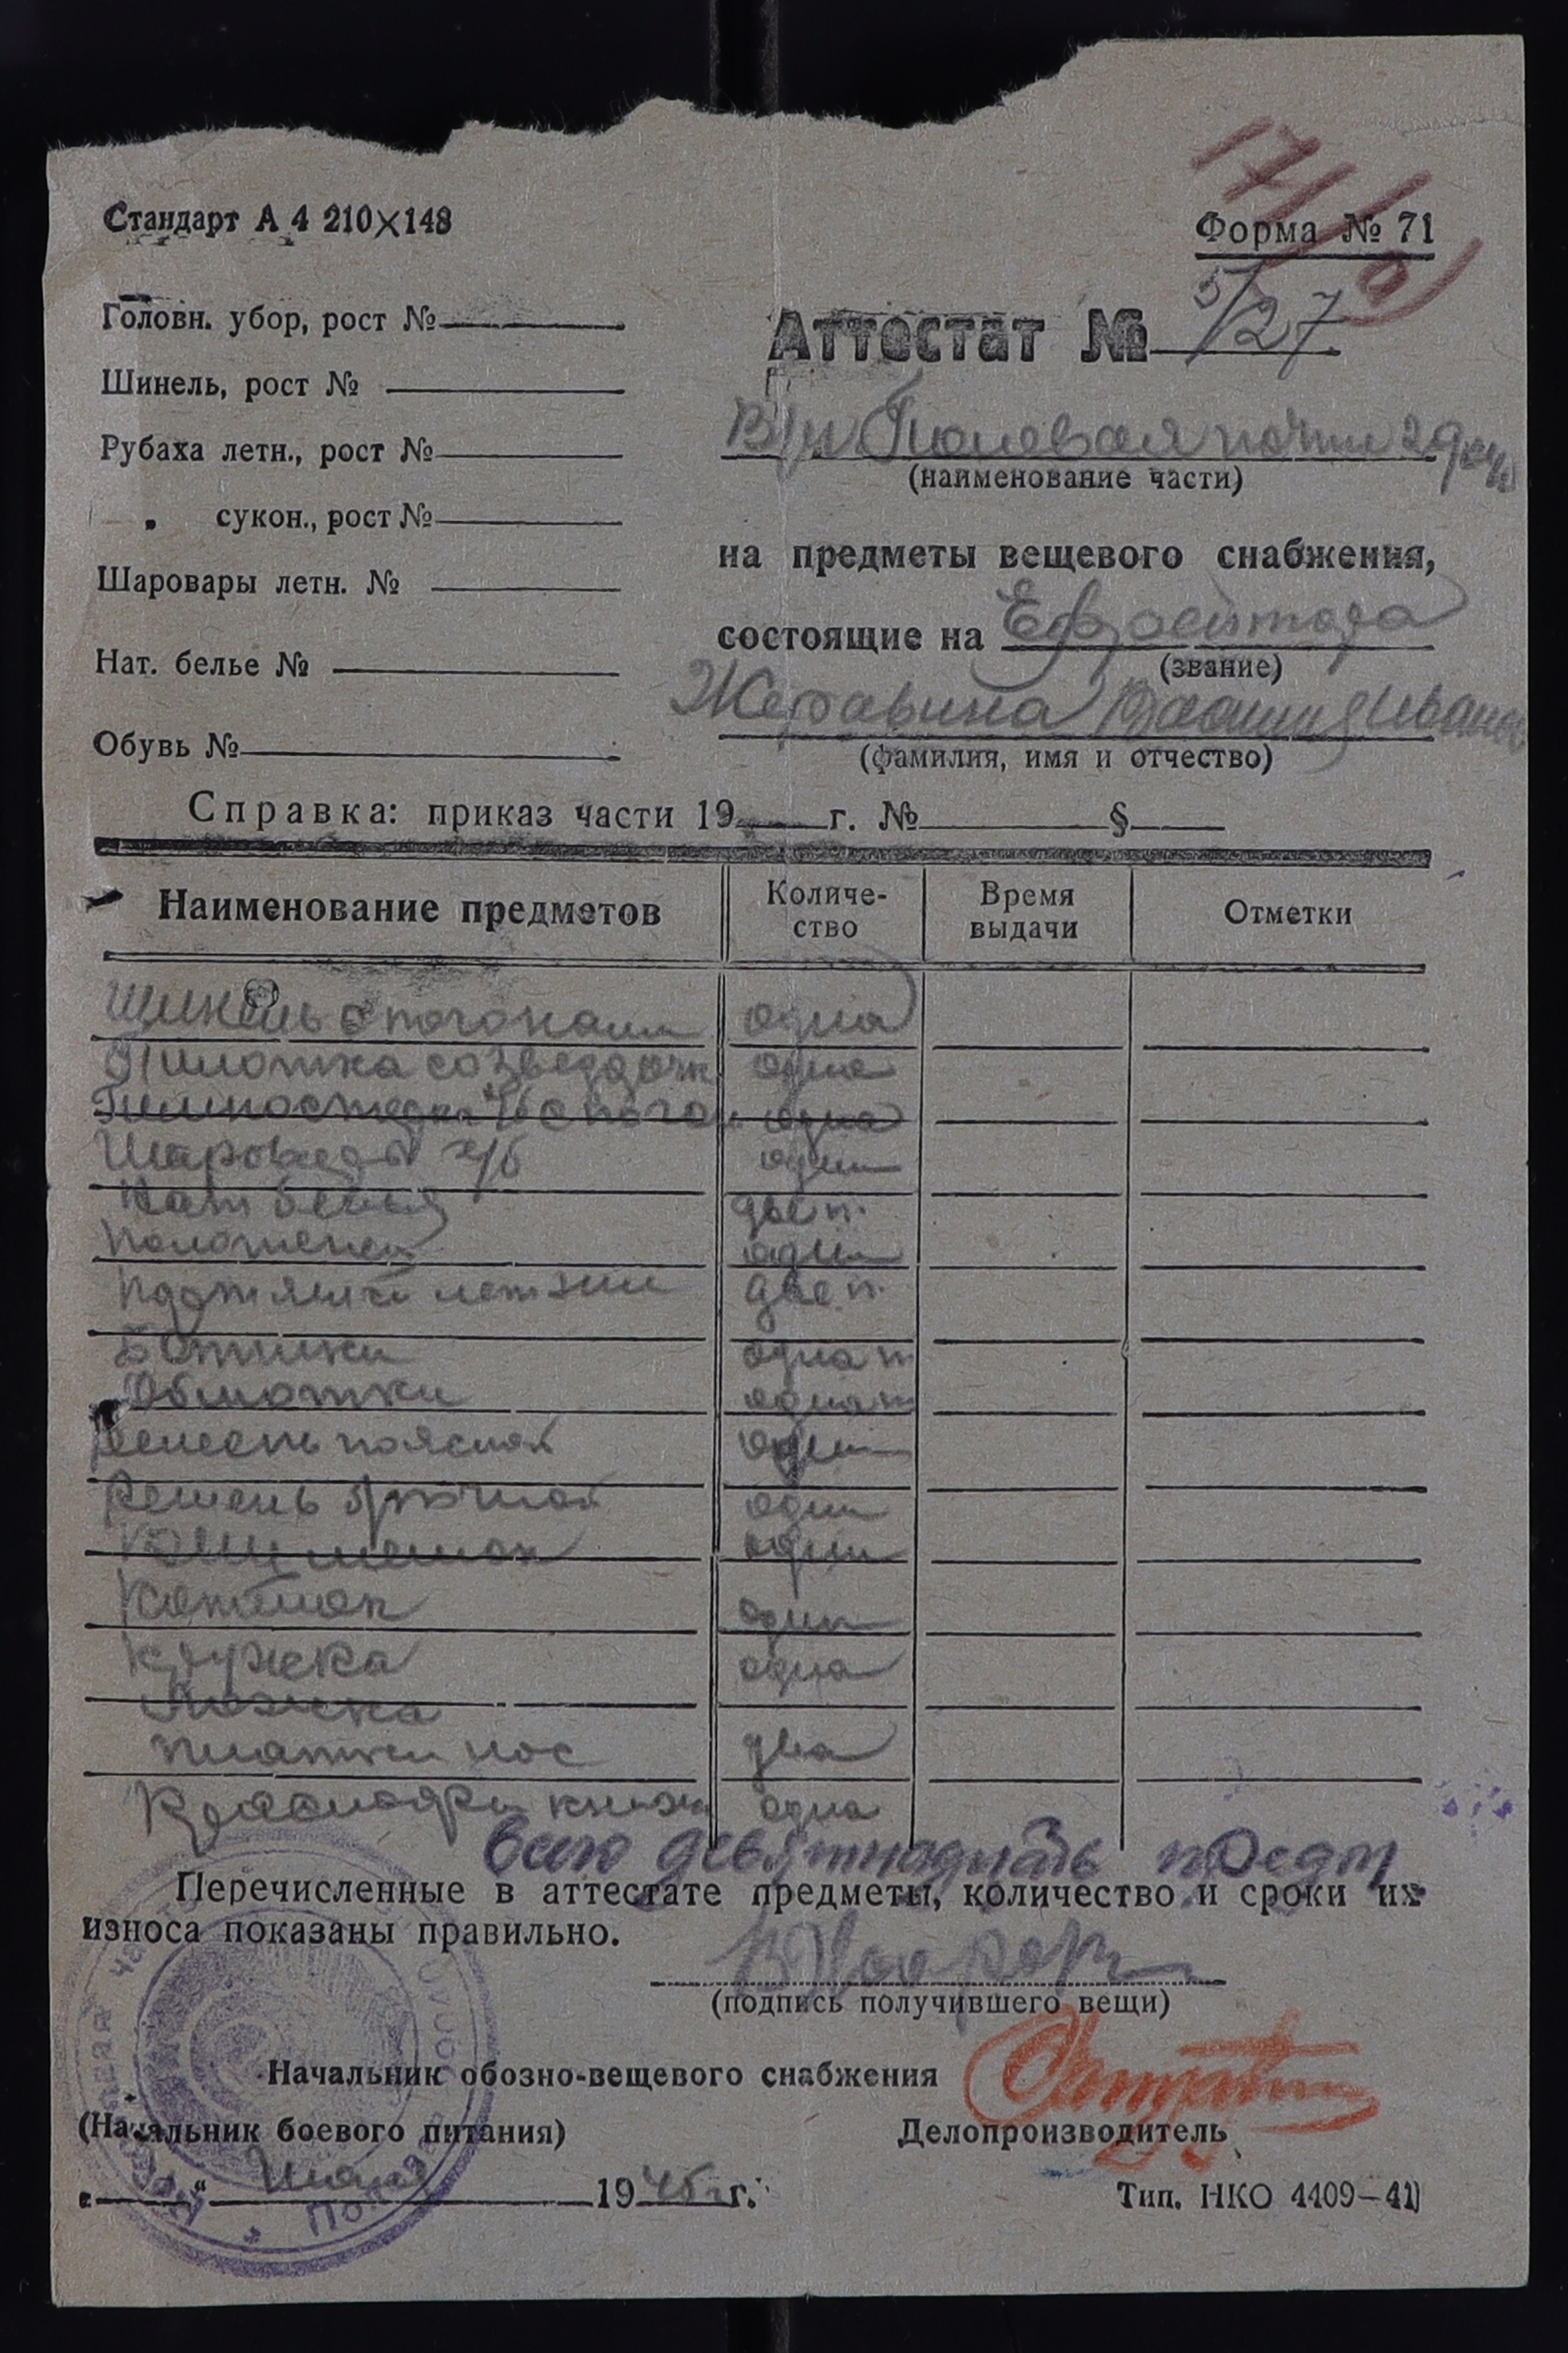 17/
Стандарт А 4 210×148
Форма № 71
Головн. убор, рост №
Аттестат № 5/27
Шинель, рост №
В/ч Полевая почта 29
Рубаха летн., рост №
(наименование части)
„ сукон., рост №
на предметы вещевого снабжения,
Шаровары летн. №
состоящие на Ефрейтора
(звание)
Нат. белье №
Жеравина Иванов
Обувь №
(фамилия, имя и отчество)
Справка: приказ части 19 г. № §
Наименование предметов Количе-ство Время выдачи Отметки
Шинель с погонами одна
Пилотка со звездочк одна
Гимностерка х/б с погон одна
Шаровары х/б одни
Нат белья две п.
Полотенец один
Портянки лет зим две п.
Ботинки одна п
Обмотки одна п
Ремень поясной один
Ремень брючной один
Вещ мешок один
Котелок один
Кружка одна
Ложка
платки нос два
Красноарм книжк одна
всего девятнадцать предм
Перечисленные в аттестате предметы, количество и сроки их
износа показаны правильно.
(подпись получившего вещи)
Начальник обозно-вещевого снабжения
(Начальник боевого питания)
Делопроизводитель
„ “ 1945 г.
Тип. НКО 4409—41